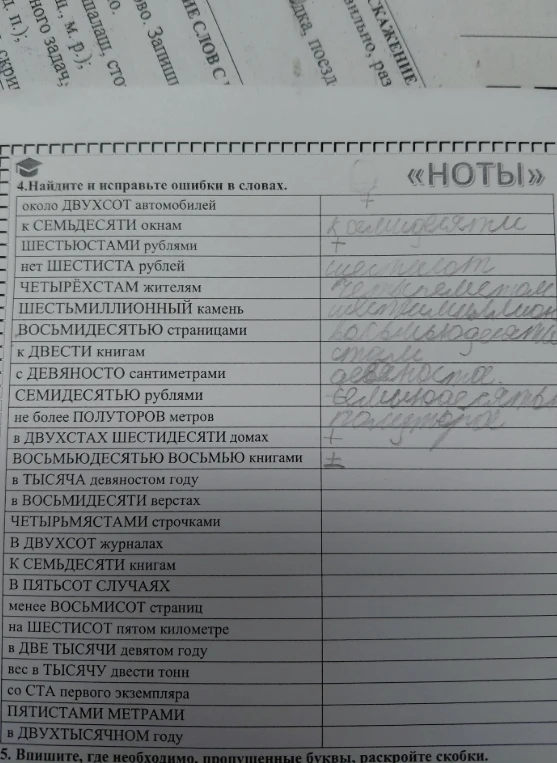 СКАЖЕНИЕ
вильно, раз
дка, поезд
ИЕ СЛОВ С
во. Запиш
шалаш, сто
ш., м. р.);
ного задач,
д. п.);
«НОТЫ»
4.Найдите и исправьте ошибки в словах.
около ДВУХСОТ автомобилей +
к СЕМЬДЕСЯТИ окнам к семидесяти
ШЕСТЬЮСТАМИ рублями +
нет ШЕСТИСТА рублей шестисот
ЧЕТЫРЁХСТАМ жителям
ШЕСТЬМИЛЛИОННЫЙ камень
ВОСЬМИДЕСЯТЬЮ страницами восьмьюдесять
к ДВЕСТИ книгам стам
с ДЕВЯНОСТО сантиметрами девяноста
СЕМИДЕСЯТЬЮ рублями семьюдесять
не более ПОЛУТОРОВ метров полутора
в ДВУХСТАХ ШЕСТИДЕСЯТИ домах +
ВОСЬМЬЮДЕСЯТЬЮ ВОСЬМЬЮ книгами +
в ТЫСЯЧА девяностом году
в ВОСЬМИДЕСЯТИ верстах
ЧЕТЫРЬМЯСТАМИ строчками
В ДВУХСОТ журналах
К СЕМЬДЕСЯТИ книгам
В ПЯТЬСОТ СЛУЧАЯХ
менее ВОСЬМИСОТ страниц
на ШЕСТИСОТ пятом километре
в ДВЕ ТЫСЯЧИ девятом году
вес в ТЫСЯЧУ двести тонн
со СТА первого экземпляра
ПЯТИСТАМИ МЕТРАМИ
в ДВУХТЫСЯЧНОМ году
5. Впишите, где необходимо, пропущенные буквы, раскройте скобки.